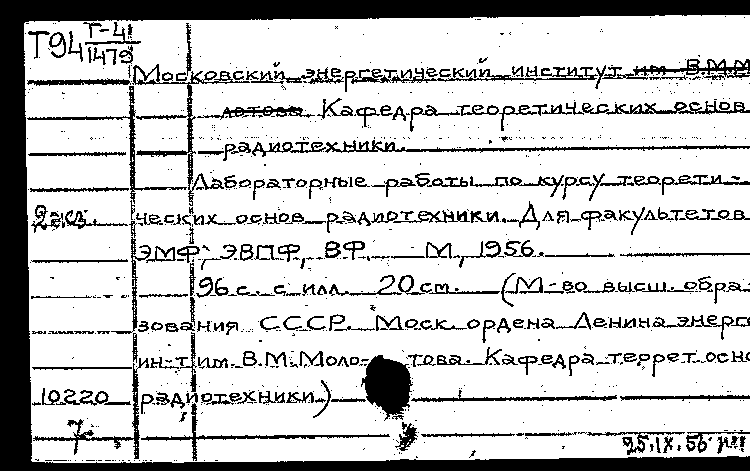 Т94 Т-41
1479
Московский энергетический институт им. В.М.М
лотова. Кафедра теоретических основ
радиотехники.
Лабораторные работы по курсу теорети-
2 экз. ческих основ радиотехники. Для факультетов
ЭМФ, ЭВПФ, ВФ. М, 1956.
96 с. с илл. 20 см. (М-во высш. обра-
зования СССР. Моск. ордена Ленина энерг
ин-т им. В.М. Моло- това. Кафедра теорет осно
10220 радиотехники)
25.IX.56